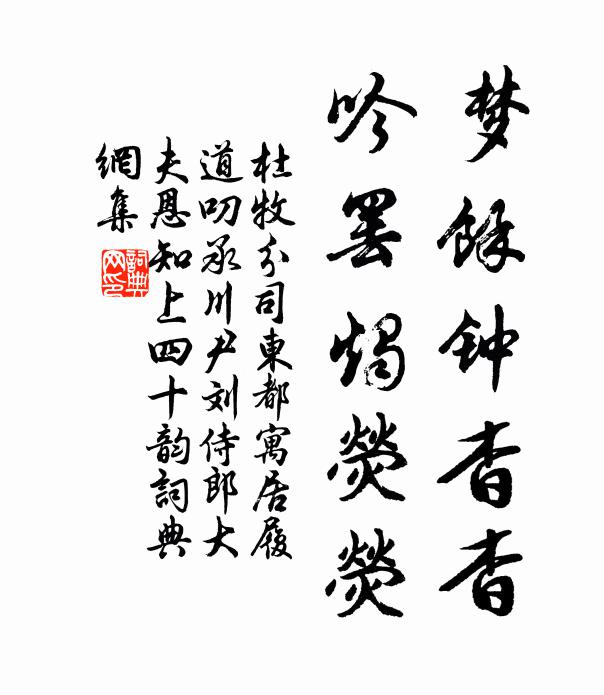 梦餘钟杳杳
吟罢燭熒熒
杜牧分司東都寓居履
道叨承川尹刘侍郎大
夫恩知上四十韵詞典
網集
詞典
网印